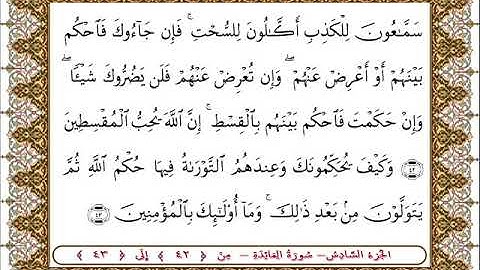 سَمَّٰعُونَ لِلْكَذِبِ أَكَّٰلُونَ لِلسُّحْتِ ۚ فَإِن جَآءُوكَ فَٱحْكُم
بَيْنَهُمْ أَوْ أَعْرِضْ عَنْهُمْ ۖ وَإِن تُعْرِضْ عَنْهُمْ فَلَن يَضُرُّوكَ شَيْـًٔا ۖ
وَإِنْ حَكَمْتَ فَٱحْكُم بَيْنَهُم بِٱلْقِسْطِ ۚ إِنَّ ٱللَّهَ يُحِبُّ ٱلْمُقْسِطِينَ
﴿٤٢﴾ وَكَيْفَ يُحَكِّمُونَكَ وَعِندَهُمُ ٱلتَّوْرَىٰةُ فِيهَا حُكْمُ ٱللَّهِ ثُمَّ
يَتَوَلَّوْنَ مِنۢ بَعْدِ ذَٰلِكَ ۚ وَمَآ أُو۟لَٰٓئِكَ بِٱلْمُؤْمِنِينَ ﴿٤٣﴾
الجزء السَّادسُ – سُورَةُ المَائِدَةِ – مِنْ ﴿ ٤٢ ﴾ إِلَى ﴿ ٤٣ ﴾